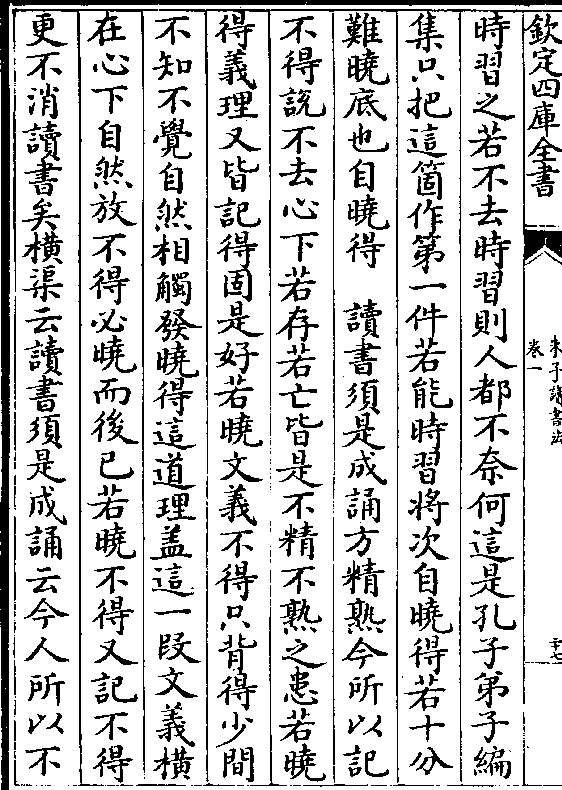 欽定四庫全書
朱子讀書法
卷一
二十七
時習之若不去時習則人都不奈何這是孔子弟子編
集只把這箇作第一件若能時習將次自曉得若十分
難曉底也自曉得　讀書須是成誦方精熟今所以記
不得說不去心下若存若亡皆是不精不熟之患若曉
得義理又皆記得固是好若曉文義不得只背得少間
不知不覺自然相觸發曉得這道理盖這一段文義橫
在心下自然放不得必曉而後已若曉不得又記不得
更不消讀書矣橫渠云讀書須是成誦云今人所以不